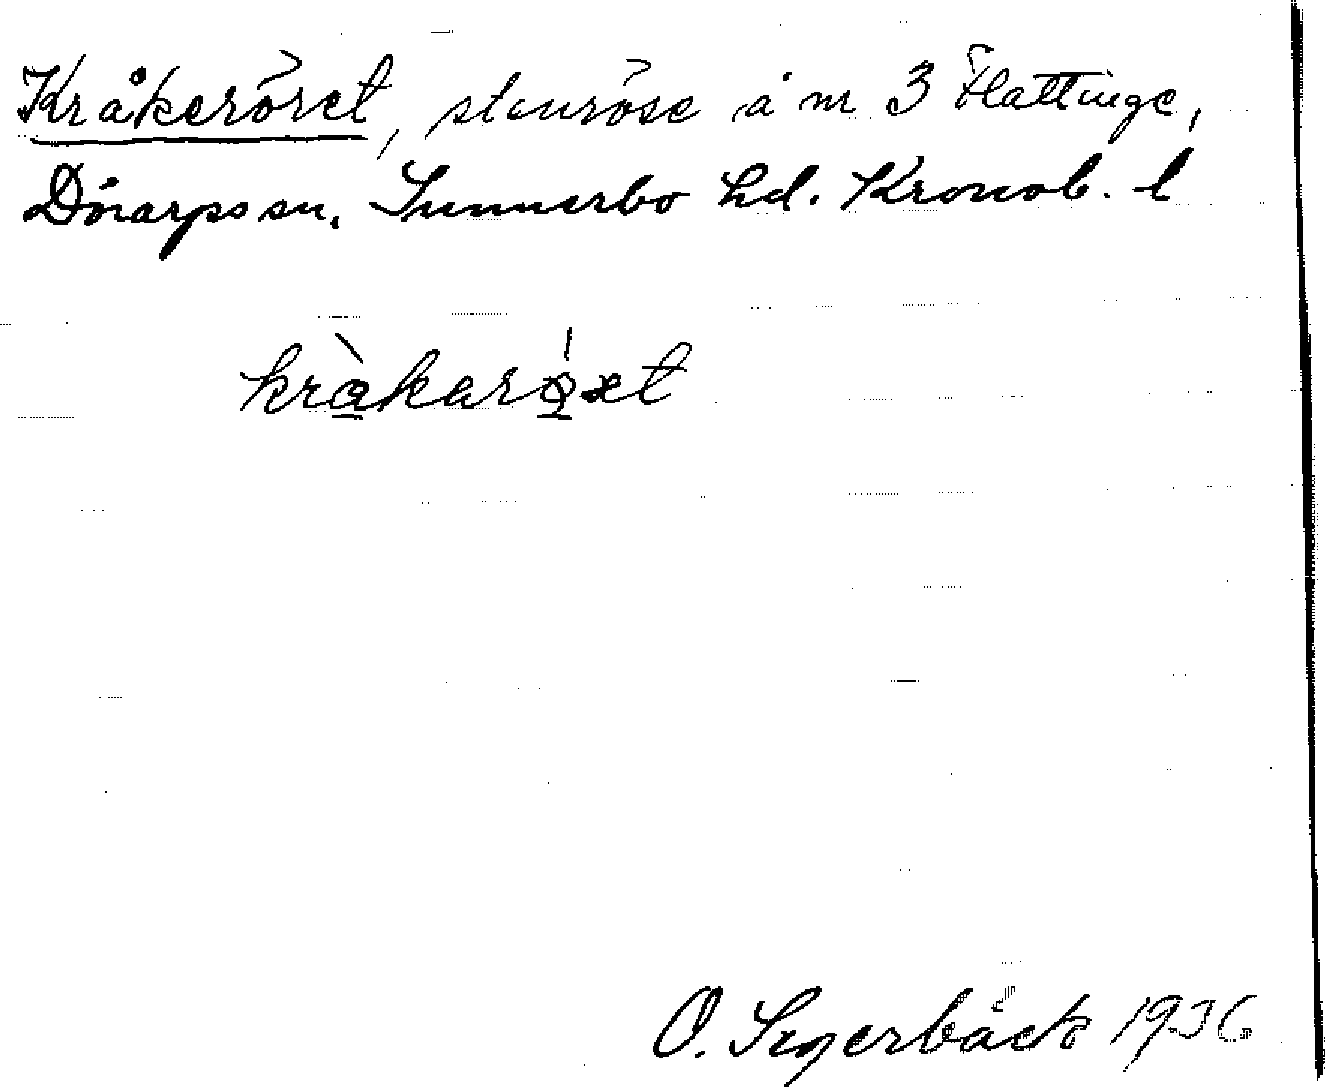 Kråkeröret, stenröse å nr 3 Flattinge,
Dörarps sn. Sunnerbo hd. Kronob. l
kràkarǫ́xt
O. Segerbäck 1936